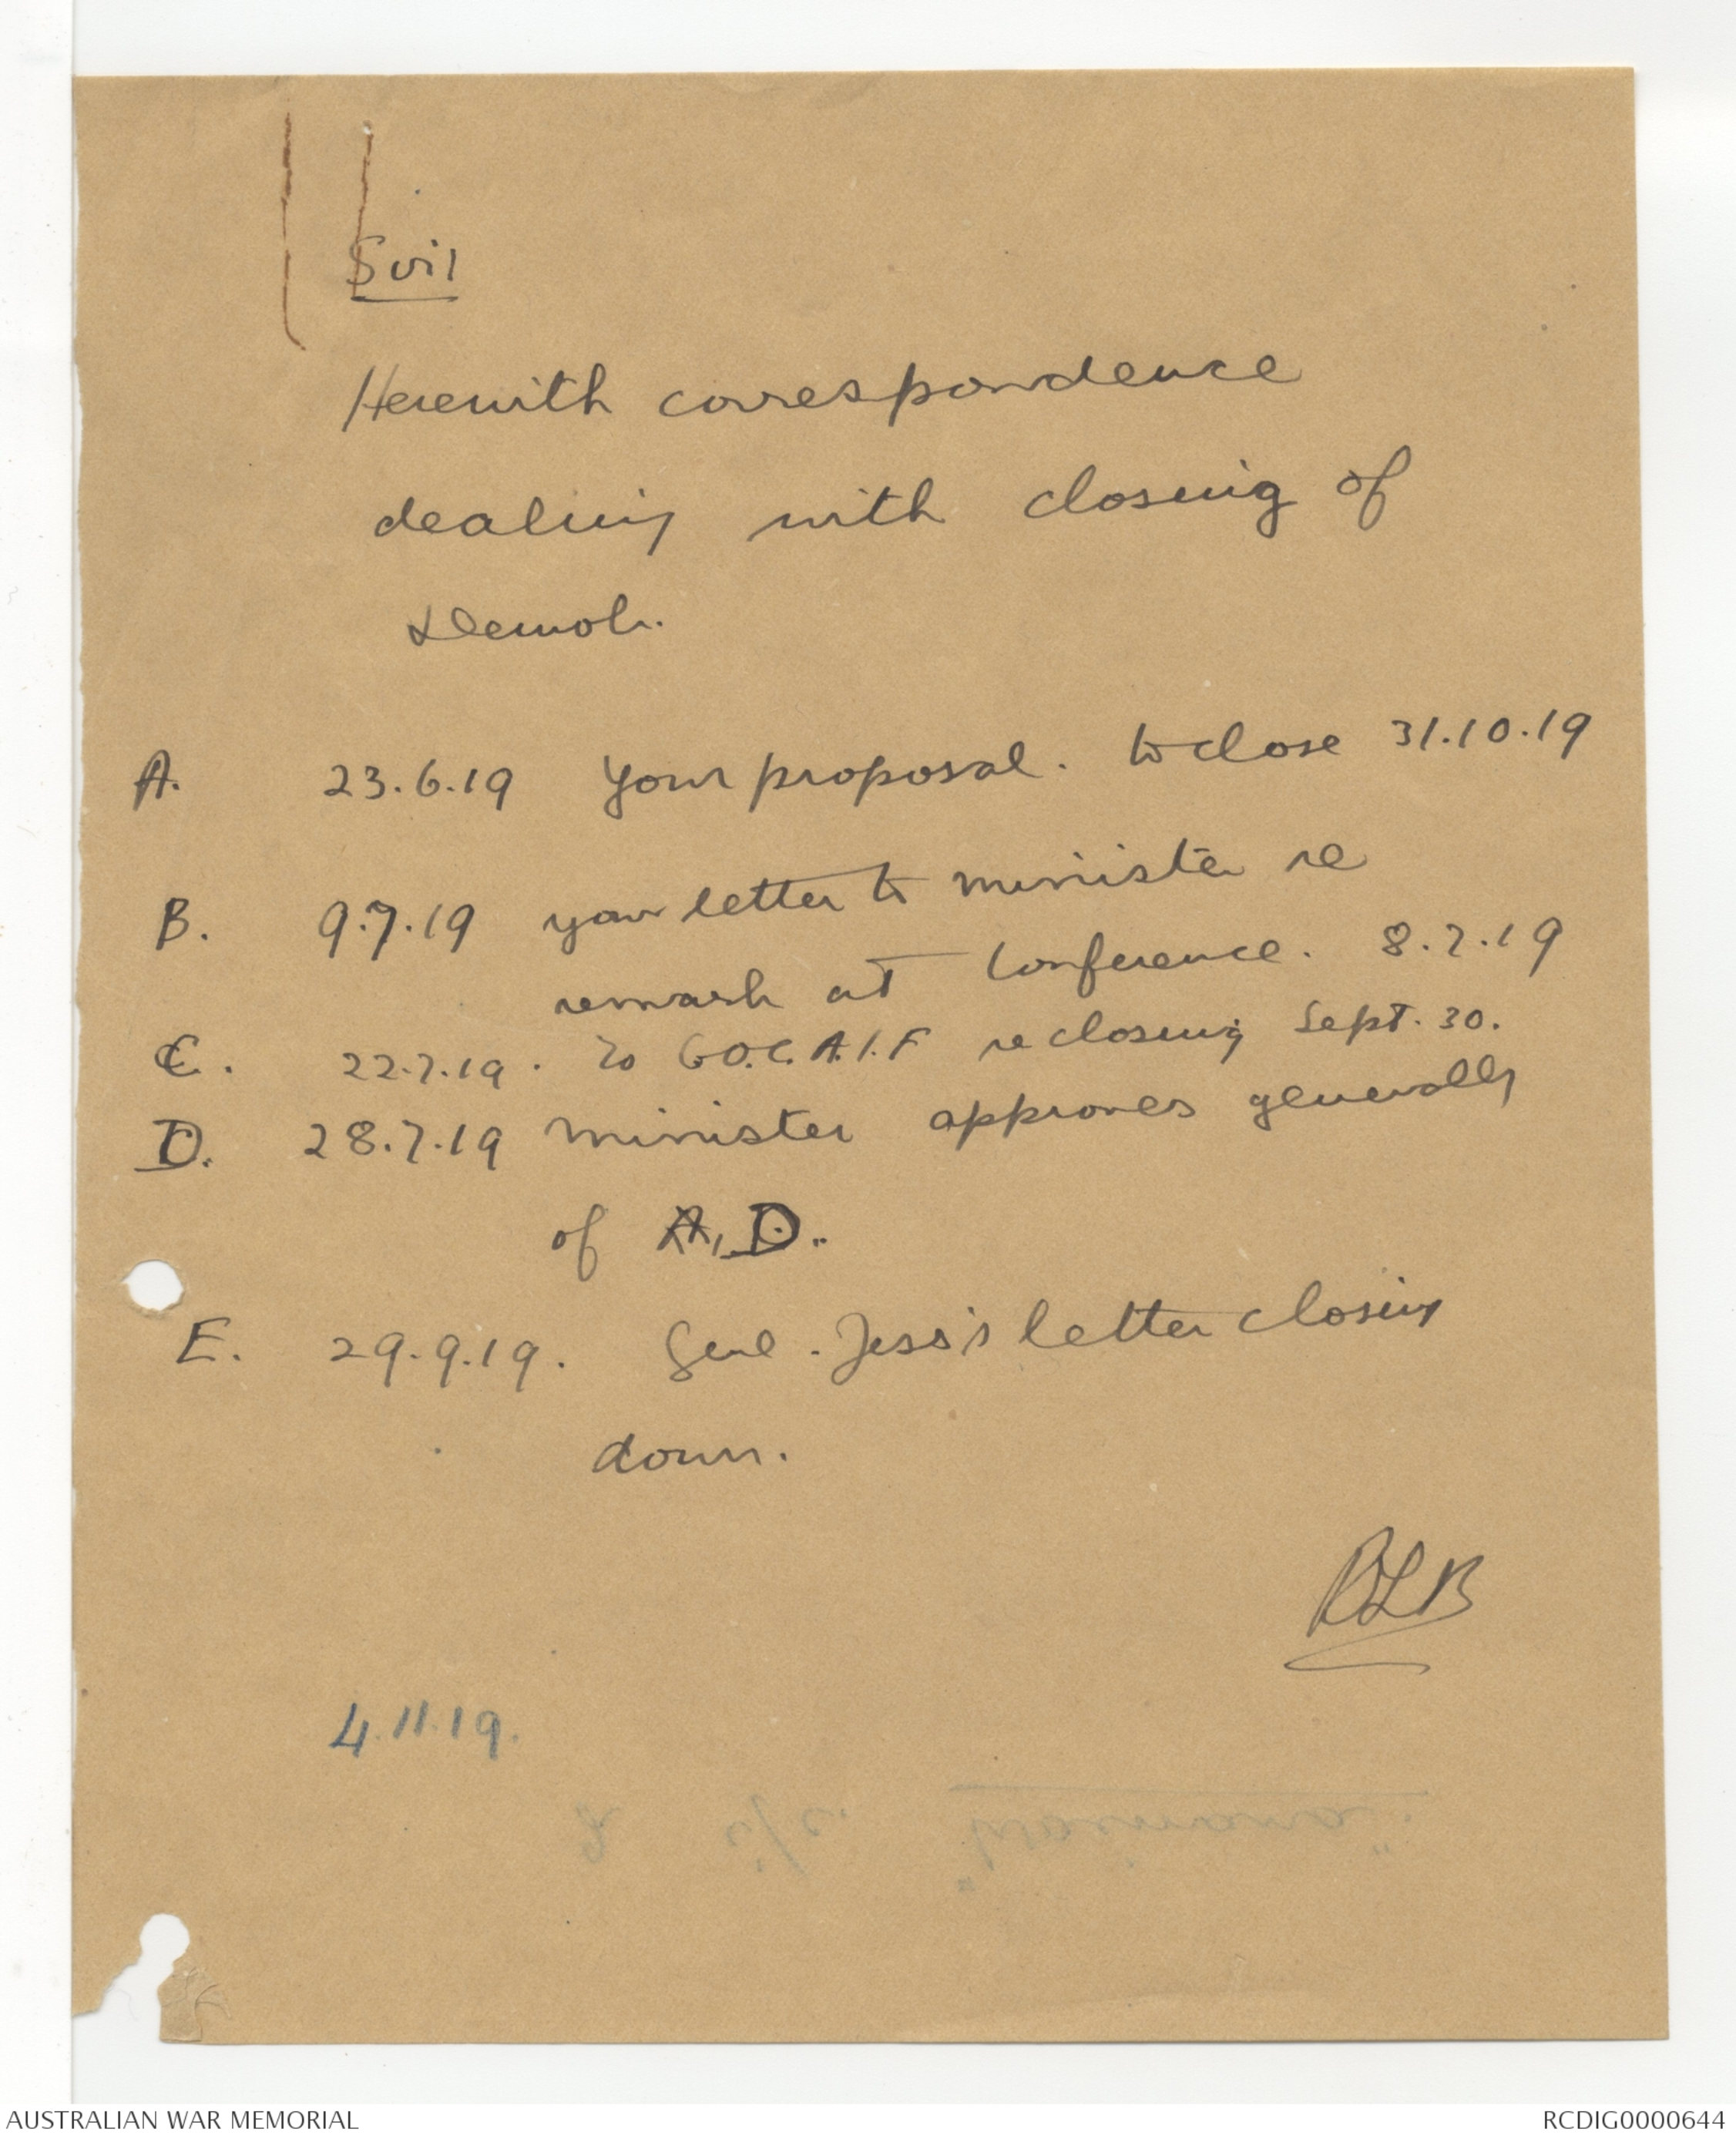 Herewith correspondence
dealing with closing of
Demob.
A. 23.6.19 Your proposal. to close 31.10.19
B. 9.7.19 your letter to minister re
remark at Conference. 8.7.19
C. 22.7.19. To G.O.C. A.I.F re closing Sept. 30.
D. 28.7.19 Minister approves generally
of A, D.
E. 29.9.19. Genl. Jess's letter closing
down.
RLB
4.11.19.
AUSTRALIAN WAR MEMORIAL
RCDIG0000644